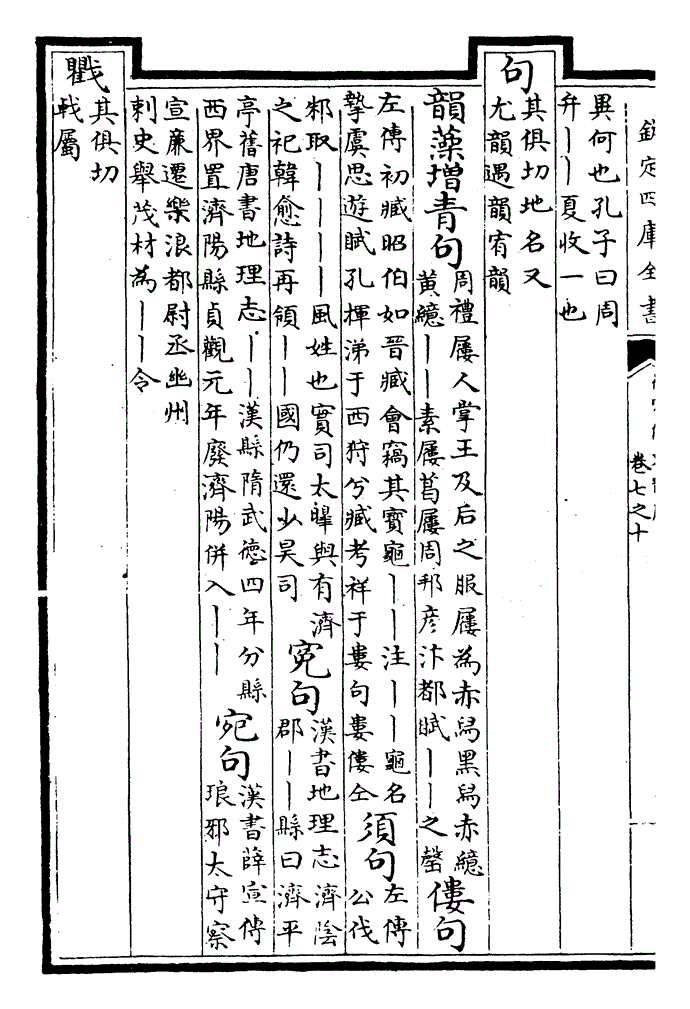 欽定四庫全書
卷七之十
異何也孔子曰周
弁丨丨夏收一也
句
其俱切地名又
尤韻遇韻宥韻
韻藻增青句
周禮屨人掌王及后之服屨為赤舄黑舄赤繶
黃繶丨丨素屨葛屨周邦彦汴都賦丨丨之罄
僂句
左傳初臧昭伯如晉臧會竊其寳龜丨丨注丨丨龜名
摯虞思遊賦孔揮涕于西狩兮臧考祥于婁句婁僂仝
須句
左傳
公伐
邾取丨丨丨丨風姓也實司太皡與有濟
之祀韓愈詩再領丨丨國仍還少昊司
寃句
漢書地理志濟陰
郡丨丨縣曰濟平
亭舊唐書地理志丨丨漢縣隋武德四年分縣
西界置濟陽縣貞觀元年廢濟陽併入丨丨
宛句
漢書薛宣傳
琅邪太守察
宣廉遷樂浪都尉丞幽州
刺史舉茂材為丨丨令
戵
其俱切
戟屬